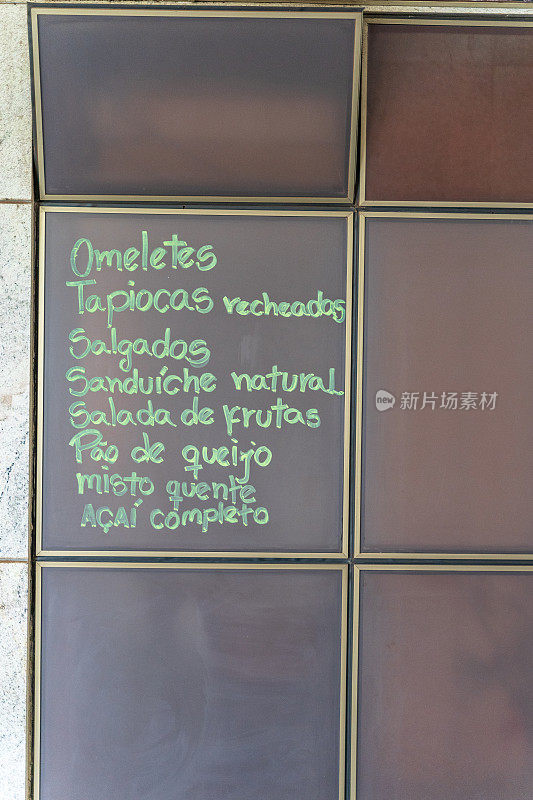 Omeletes
Tapiocas recheadas
Salgados
Sanduíche natural
Salada de frutas
Pão de queijo
misto quente
AÇAÍ completo
新片场